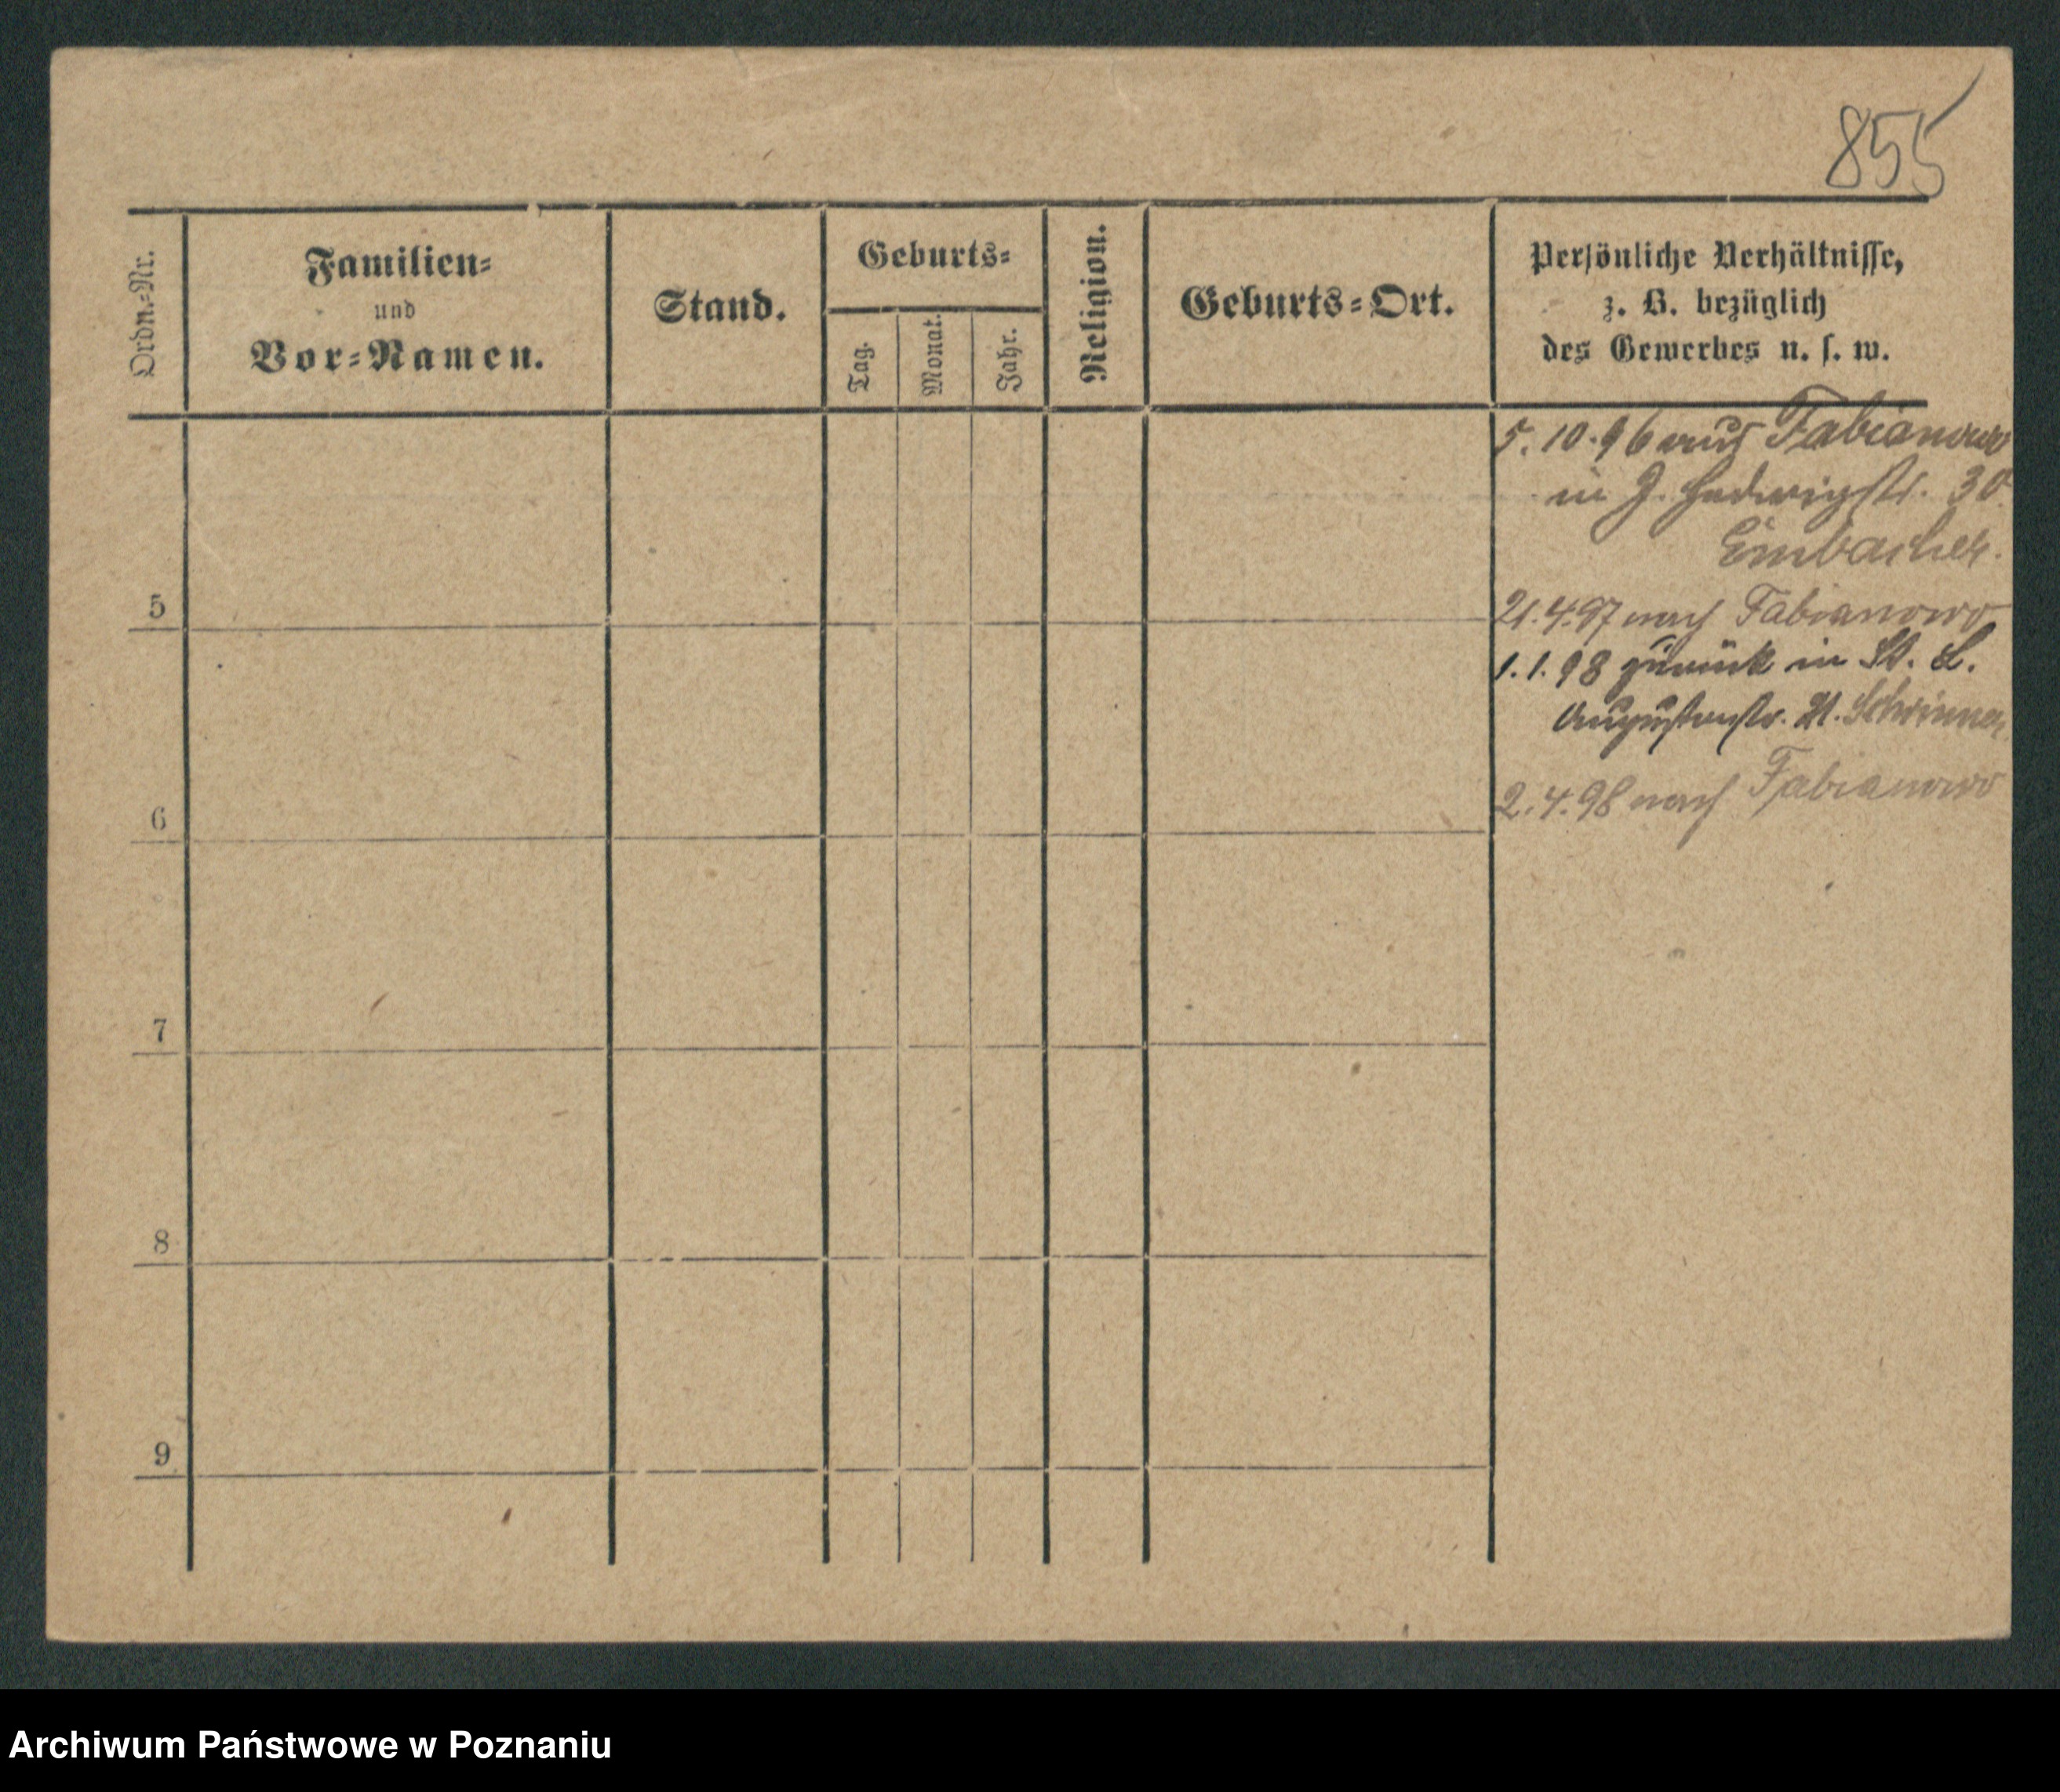 855
Ordn.-Nr.
Familien-
und
Vor-Namen.
Stand.
Geburts-
Tag.
Monat.
Jahr.
Religion.
Geburts-Ort.
Persönliche Verhältnisse,
z. B. bezüglich
des Gewerbes u. s. w.
5. 10. 96 aus Fabianowo
in J. Hedwigstr. 30
Embacher.
5
21. 4. 97 nach Fabianowo
1. 1. 98 zurück in St. L.
Augustenstr. 21.
2. 4. 98 nach Fabianowo
6
7
8
9
Archiwum Państwowe w Poznaniu